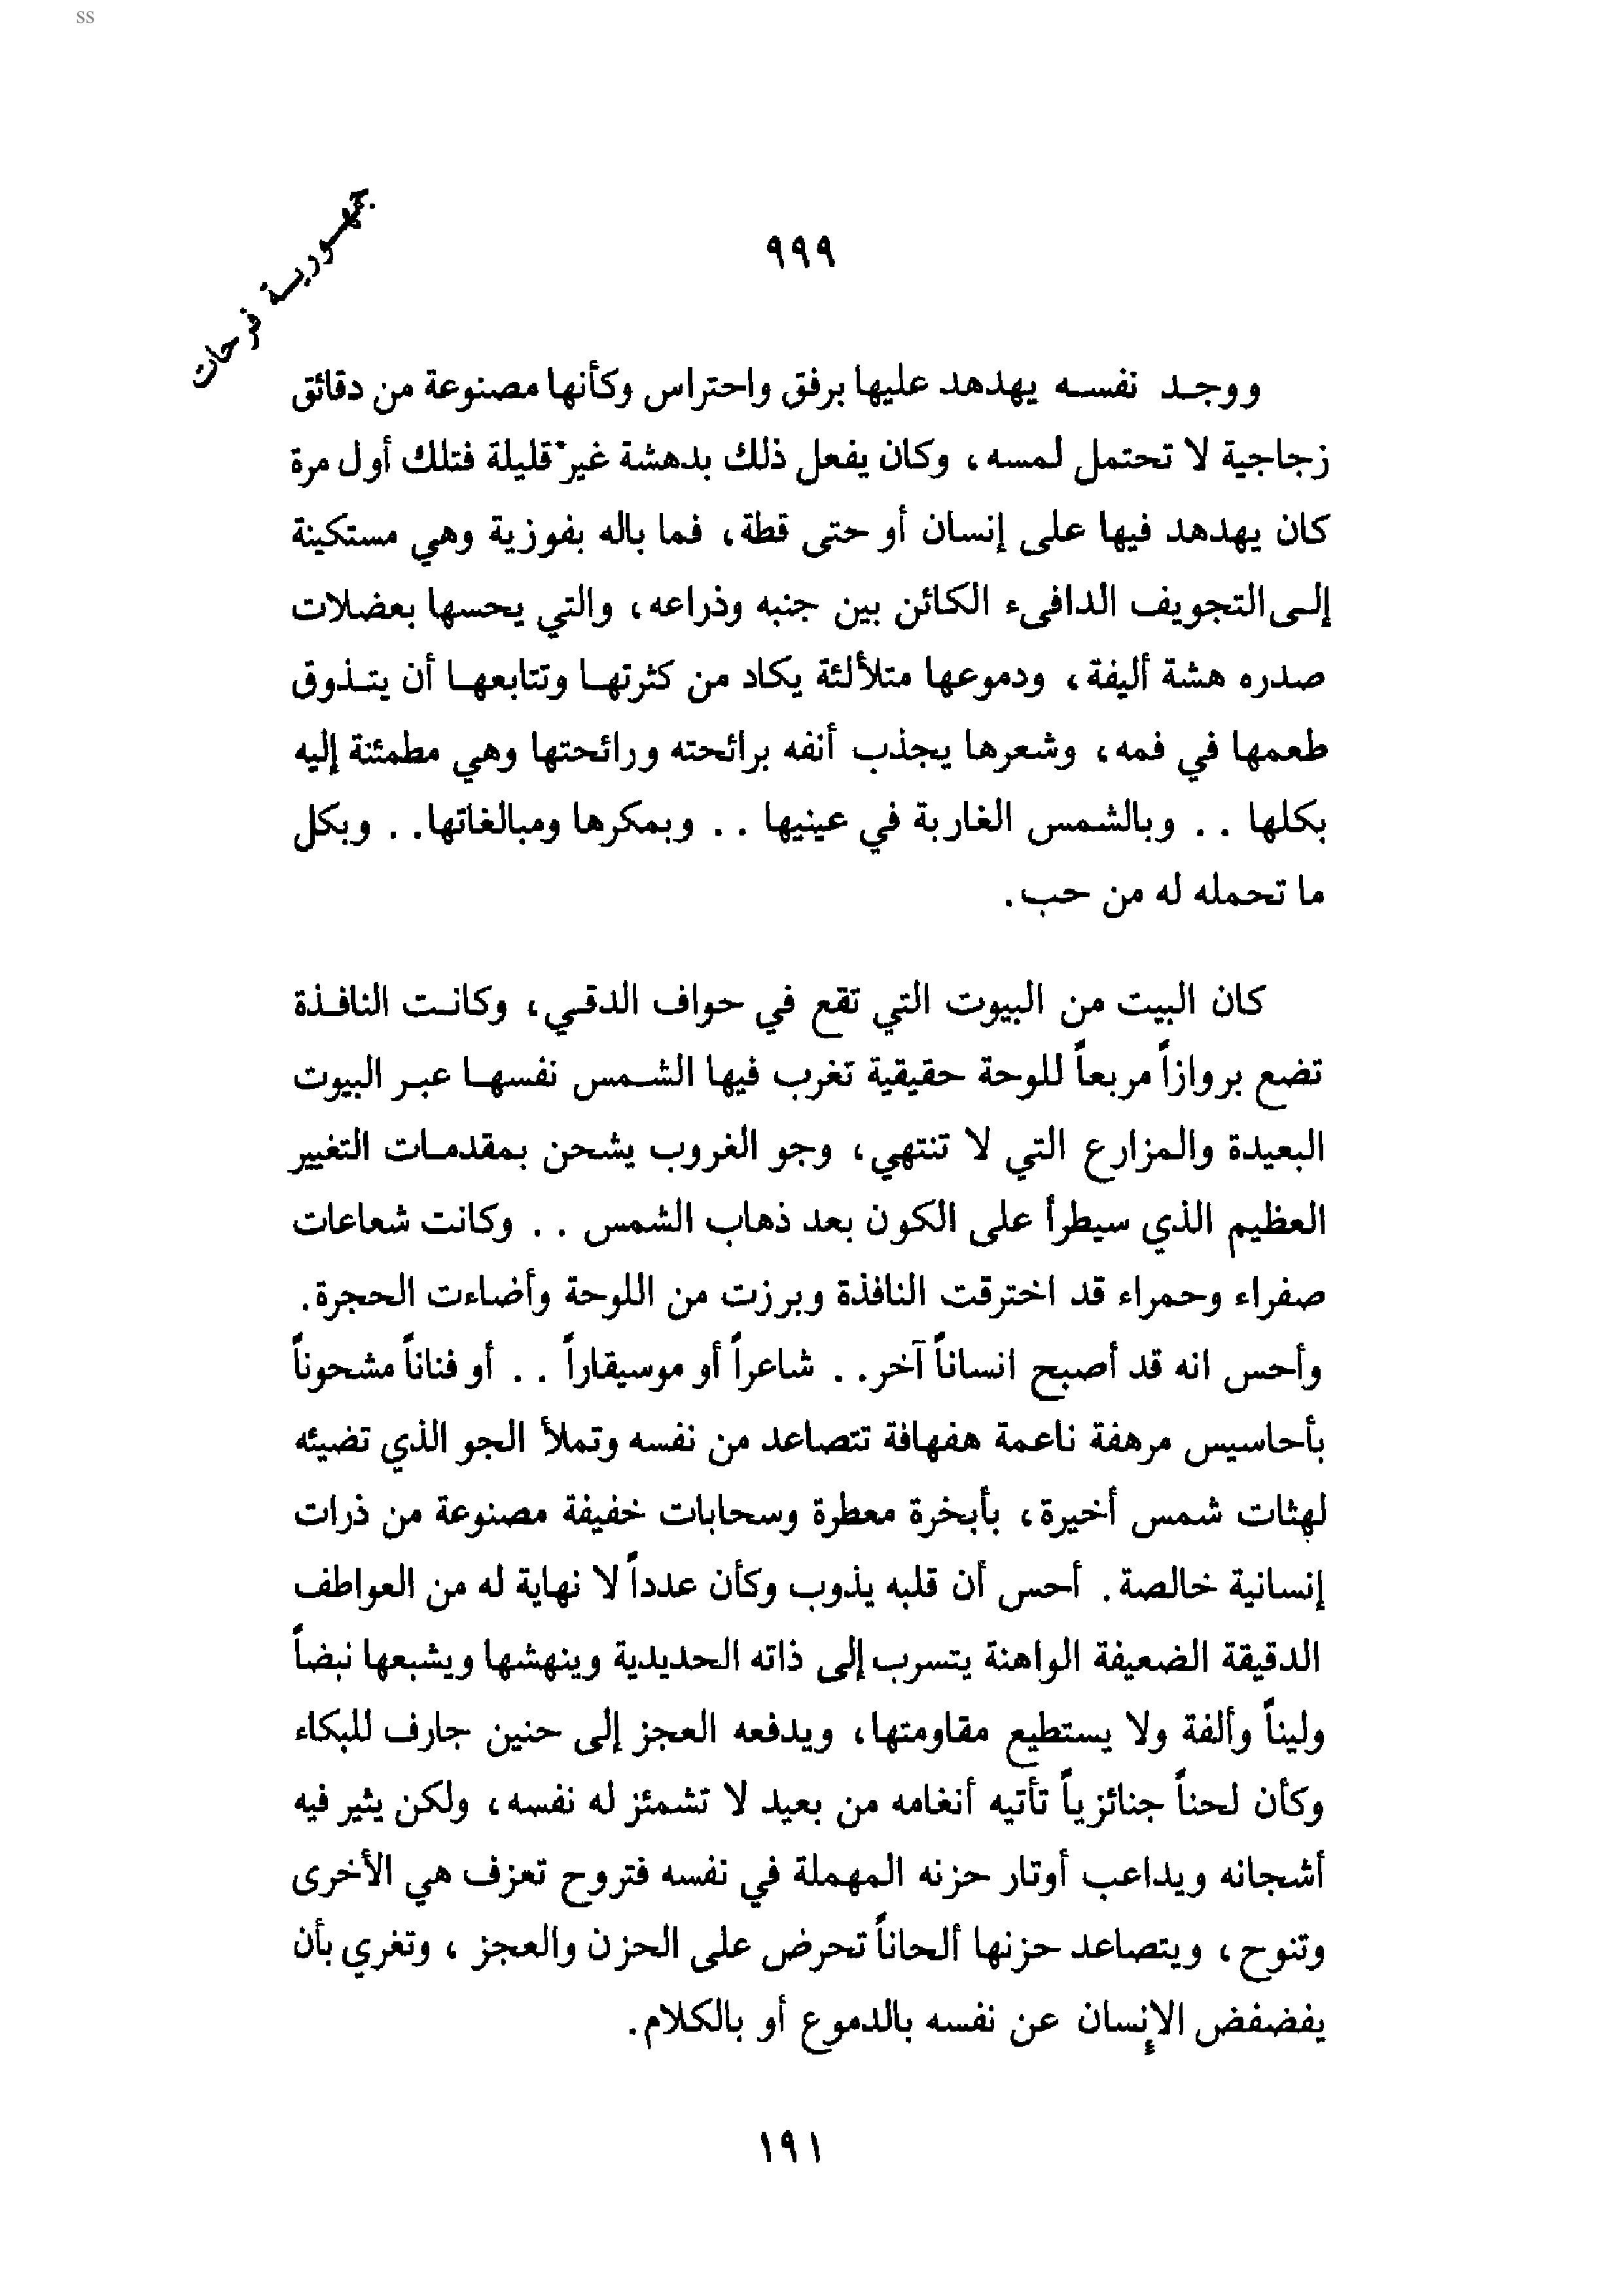 ss
جمهورية فرحات
٩٩٩
ووجد نفسه يهدهد عليها برفق واحتراس وكأنها مصنوعة من دقائق
زجاجية لا تحتمل لمسه، وكان يفعل ذلك بدهشة غير قليلة فتلك أول مرة
كان يهدهد فيها على إنسان أو حتى قطة، فما باله بفوزية وهي مستكينة
إلى التجويف الدافىء الكائن بين جنبه وذراعه، والتي يحسها بعضلات
صدره هشة أليفة، ودموعها متلألئة يكاد من كثرتها وتتابعها أن يتذوق
طعمها في فمه، وشعرها يجذب أنفه برائحته ورائحتها وهي مطمئنة إليه
بكلها .. وبالشمس الغاربة في عينيها .. وبمكرها ومبالغاتها.. وبكل
ما تحمله له من حب.
كان البيت من البيوت التي تقع في حواف الدقي، وكانت النافذة
تضع بروازاً مربعاً للوحة حقيقية تغرب فيها الشمس نفسها عبر البيوت
البعيدة والمزارع التي لا تنتهي، وجو الغروب يشحن بمقدمات التغيير
العظيم الذي سيطرأ على الكون بعد ذهاب الشمس .. وكانت شعاعات
صفراء وحمراء قد اخترقت النافذة وبرزت من اللوحة وأضاءت الحجرة.
وأحس انه قد أصبح انساناً آخر.. شاعراً أو موسيقاراً .. أو فناناً مشحوناً
بأحاسيس مرهفة ناعمة هفهافة تتصاعد من نفسه وتملأ الجو الذي تضيئه
لهثات شمس أخيرة، بأبخرة معطرة وسحابات خفيفة مصنوعة من ذرات
إنسانية خالصة. أحس أن قلبه يذوب وكأن عدداً لا نهاية له من العواطف
الدقيقة الضعيفة الواهنة يتسرب إلى ذاته الحديدية وينهشها ويشبعها نبضاً
وليناً وألفة ولا يستطيع مقاومتها، ويدفعه العجز إلى حنين جارف للبكاء
وكأن لحناً جنائزياً تأتيه أنغامه من بعيد لا تشمئز له نفسه، ولكن يثير فيه
أشجانه ويداعب أوتار حزنه المهملة في نفسه فتروح تعزف هي الأخرى
وتنوح، ويتصاعد حزنها ألحاناً تحرض على الحزن والعجز، وتغري بأن
يفضفض الإنسان عن نفسه بالدموع أو بالكلام.
١٩١